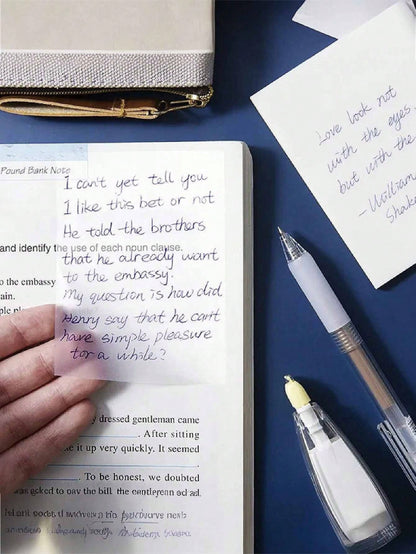 Pound Bank Note
I can't yet tell you
I like this bet or not
He told the brothers
and identify the use of each noun clause.
that he already want
to the embassy
to the embassy.
ain.
My question is how did
Henry say that he can't
have simple pleasure
for a while?
dressed gentleman came
. After sitting
it up very quickly. It seemed
. To be honest, we doubted
to pay the bill. the gentleman
Love look not
with the eyes
but with the
- William
Shake